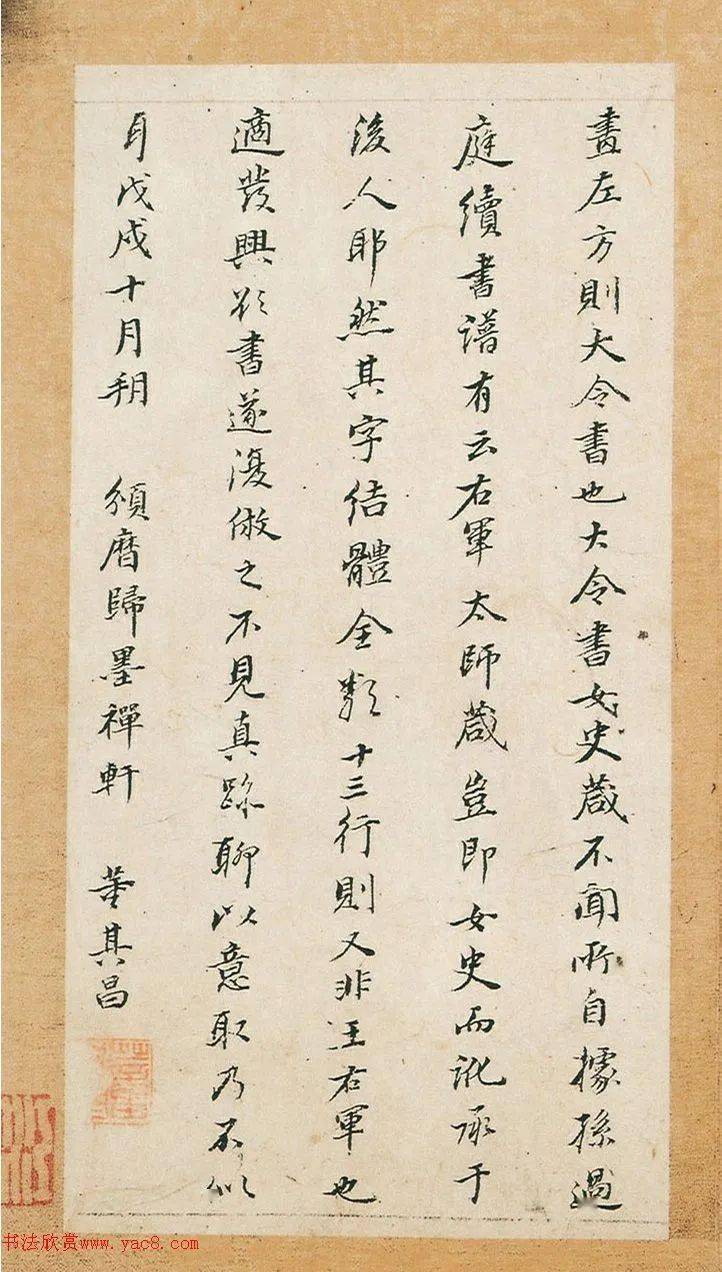 畫左方則大令書也大令書女史葴不聞所自據孫過
庭續書譜有云右軍太師葴豈即女史而訛承于
後人耶然其字結體全類十三行則又非王右軍也
適發興欲書遂復倣之不見真跡聊以意取乃不似
耳戊戌十月朔 頒曆歸墨禪軒 董其昌
书法欣赏www.yac8.com